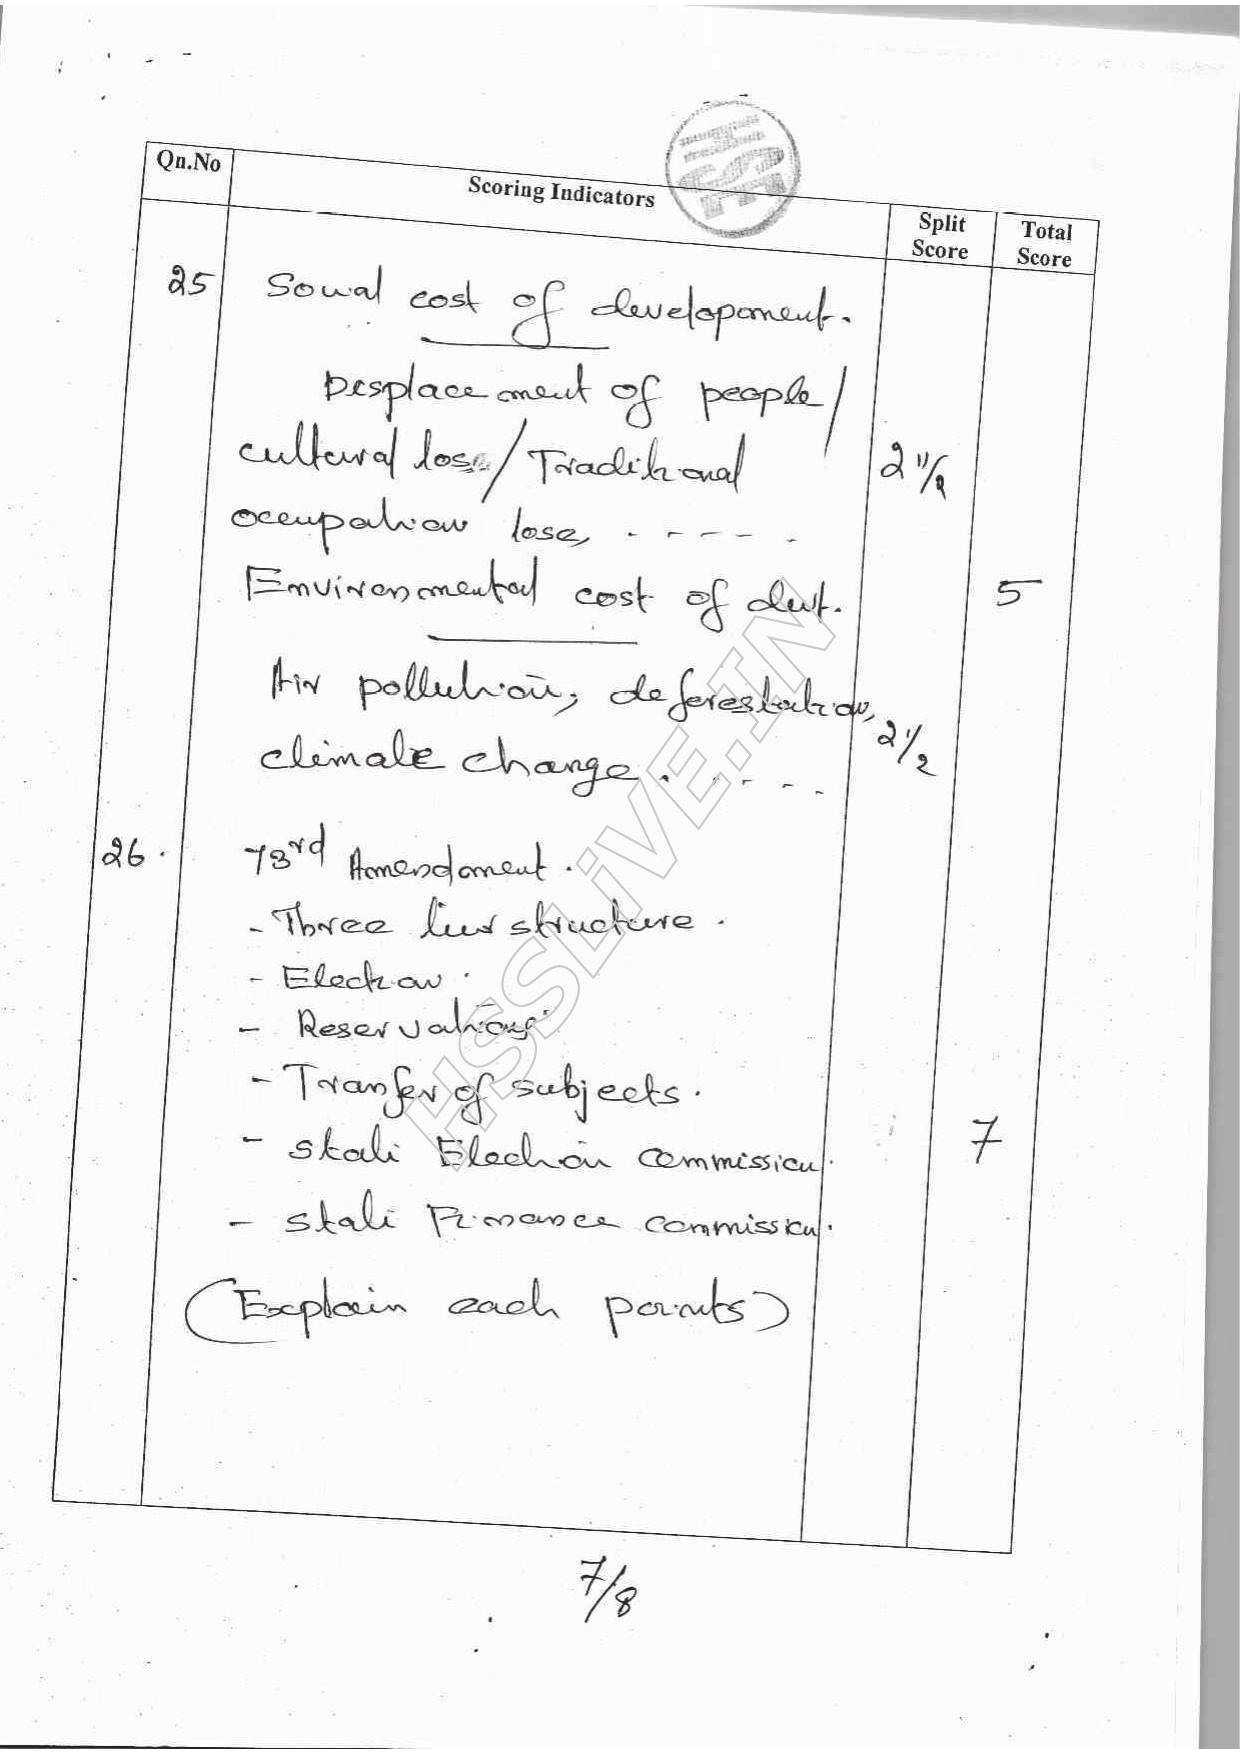 HSE
Qn.No Scoring Indicators Split Score Total Score
25 Social cost of development.
Displacement of people/
cultural lose/Traditional 2 1/2
occupation lose, . - - - - .
Environmental cost of devt. 5
Air pollution, deforestation,
climate change. . - - - - 2 1/2
26. 73rd Amendment.
- Three tier structure.
- Election.
- Reservations
- Tranfer of subjects.
- State Election commission. 7
- State Finance commission.
(Explain each points)
7/8
HSSLiVE.IN